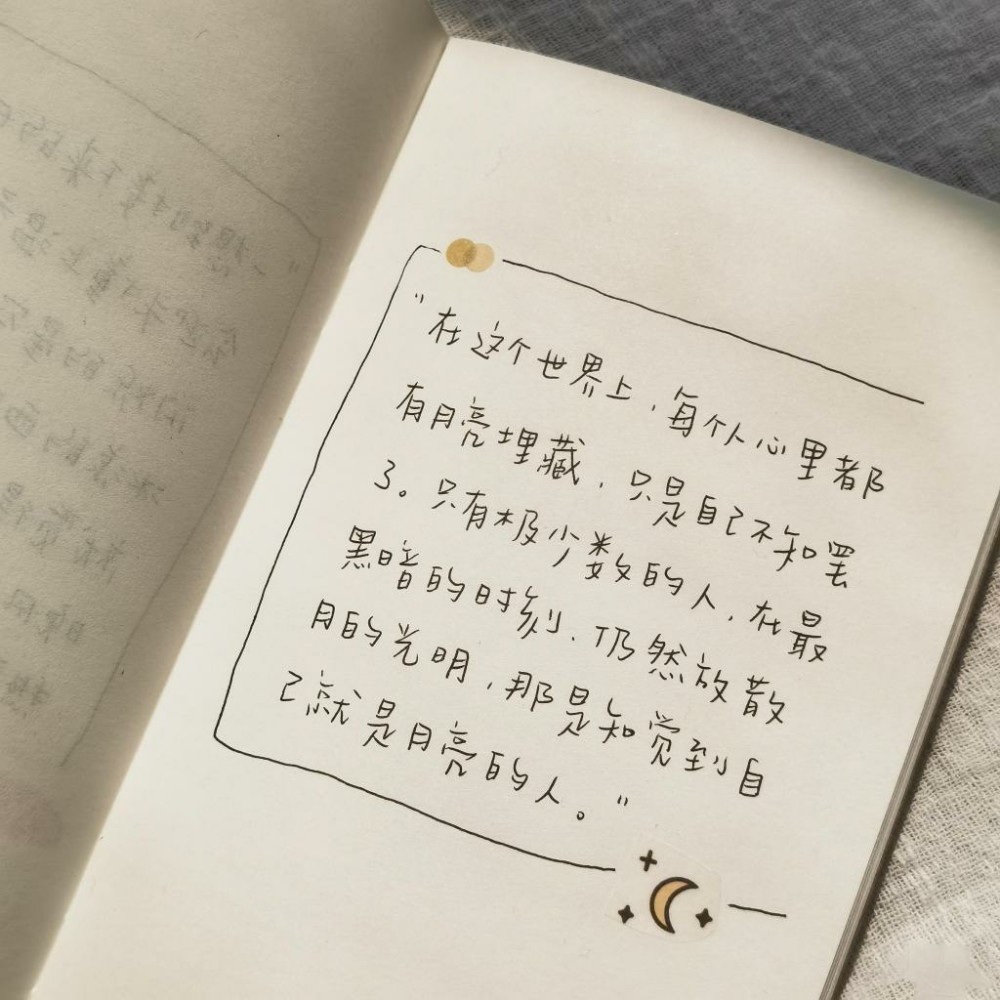 "在这个世界上，每个人心里都
有月亮埋藏，只是自己不知罢
了。只有极少数的人，在最
黑暗的时刻，仍然放散
月的光明，那是知觉到自
己就是月亮的人。"